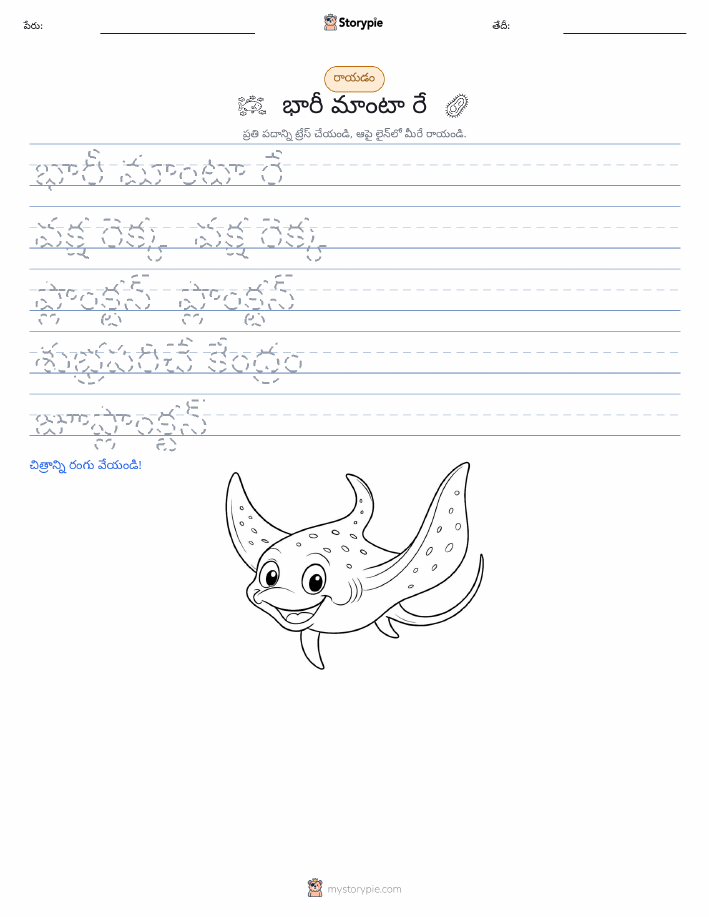 పేరు:
Storypie
తేదీ:
రాయడం
భారీ మాంటా రే
ప్రతి పదాన్ని ట్రేస్ చేయండి, ఆపై లైన్‌లో మీరే రాయండి.
భారీ మాంటా రే
పక్ష రెక్క పక్ష రెక్క
ప్లాంక్టన్ ప్లాంక్టన్
శుభ్రపరిచే కేంద్రం
జూప్లాంక్టన్
చిత్రాన్ని రంగు వేయండి!
mystorypie.com